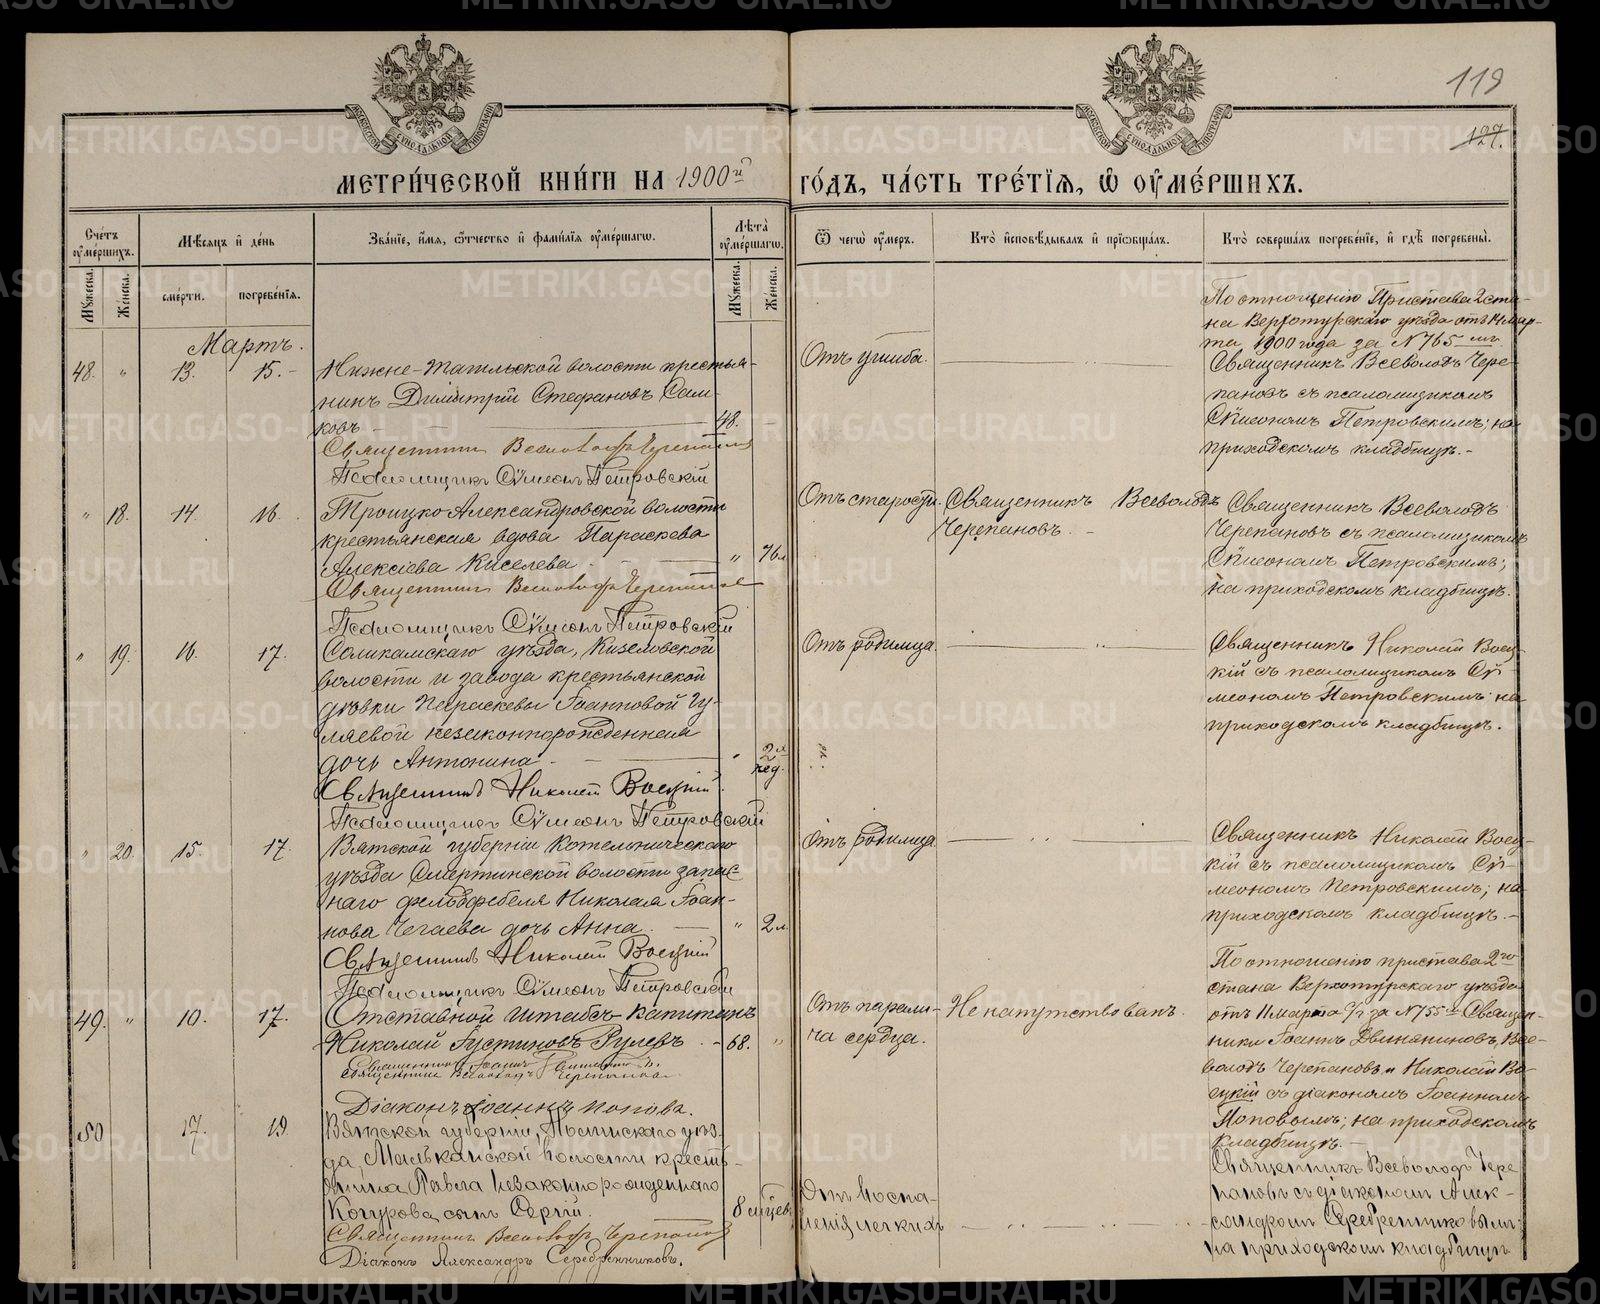 119
127.
МЕТРИ́ЧЕСКОЙ КНИ́ГИ НА 1900й
ГО́ДЪ, ЧА́СТЬ ТРЕ́ТІѦ, Ѽ ОУ҆МЕ́РШИХЪ.
Сче́тъ оу҆ме́ршихъ.
Мꙋ́жеска.
Же́нска.
Мѣ́сѧцъ и҆ де́нь
сме́рти.
погребе́нїѧ.
Зва́нїе, и҆́мѧ, ѻ҆́тчество и҆ фами́лїѧ оу҆ме́ршагѡ.
Лѣ́та оу҆ме́ршагѡ.
Мꙋ́жеска.
Же́нска.
Ѿ чегѡ̀ оу҆́меръ.
Кто̀ и҆сповѣ́дывалъ и҆ прїѡбща́лъ.
Кто̀ соверша́лъ погребе́нїе, и҆ гдѣ̀ погребены̀.
Мартъ.
48. " 13. 15.
Нижне-Тагильской волости крестья-
нинъ Димитрій Стефановъ Сам-
ковъ - 48.
Священникъ Всеволодъ Черепановъ
Псаломщикъ Сѷмеонъ Петровскій
Отъ ушиба.
По отношенію Пристава 2 ста-
на Верхотурскаго уѣзда отъ 14 мар-
та 1900 года за N 765
Священникъ Всеволодъ Чере-
пановъ съ псаломщикомъ
Сѷмеономъ Петровскимъ; на
приходскомъ кладбищѣ.-
" 18. 14. 16.
Троицко Александровской волости
крестьянская вдова Параскева
Алексіева Киселева. " 76 л
Священникъ Всеволодъ Черепановъ
Псаломщикъ Сѷмеонъ Петровскій
Отъ старости.
Священникъ Всеволодъ
Черепановъ. -
Священникъ Всеволодъ
Черепановъ съ псаломщикомъ
Сѷмеономъ Петровскимъ;
на приходскомъ кладбищѣ.
" 19. 16. 17.
Соликамскаго уѣзда, Кизеловской
волости и завода крестьянской
дѣвки Параскевы Іоанновой Гу-
ляевой незаконнорожденная
дочь Антонина " 2 нед.
Священникъ Николай Воецкій
Псаломщикъ Сѷмеонъ Петровскій
Отъ родимца.
Священникъ Николай Воец-
кій съ псаломщикомъ Сѷ-
меономъ Петровскимъ; на
приходскомъ кладбищѣ.
" 20. 15. 17.
Вятской губерніи Котельническаго
уѣзда Смертинской волости запас-
наго фельдфебеля Николая Іоан-
нова Чегаева дочь Анна. " 2 л.
Священникъ Николай Воецкій
Псаломщикъ Сѷмеонъ Петровскій
Отъ родимца
Священникъ Николай Воец-
кій съ псаломщикомъ Сѷ-
меономъ Петровскимъ; на
приходскомъ кладбищѣ.-
49. " 10. 17.
Отставной Штабсъ-Капитанъ
Николай Густиновъ Рулевъ. - 68. "
Священникъ Іоаннъ
Священникъ Всеволодъ Черепановъ.
Діаконъ Іоаннъ Поповъ.
Отъ парали-
ча сердца.
Ненапутствованъ.
По отношенію пристава 2го
стана Верхотурскаго уѣзда
отъ 11 марта с/г за N 755 Священ-
ники Іоаннъ Двиняниновъ, Все-
володъ Черепановъ и Николай Во-
ецкій съ діакономъ Іоанномъ
Поповымъ; на приходскомъ
кладбищѣ. -
50 17. 19
Вятской губерніи, Нолинскаго уѣз-
да, Малькальской волости кресть-
янина Павла незаконнорожденнаго
Кочурова сынъ Сергій. 8 мѣсцев.
Священникъ Всеволодъ Черепановъ
Діаконъ Александръ Серебренниковъ.
Отъ воспа-
ленія легкихъ
Священникъ Всеволодъ Чере
пановъ съ діакономъ Алек-
сандромъ Серебренниковымъ;
на приходскомъ кладбищѣ